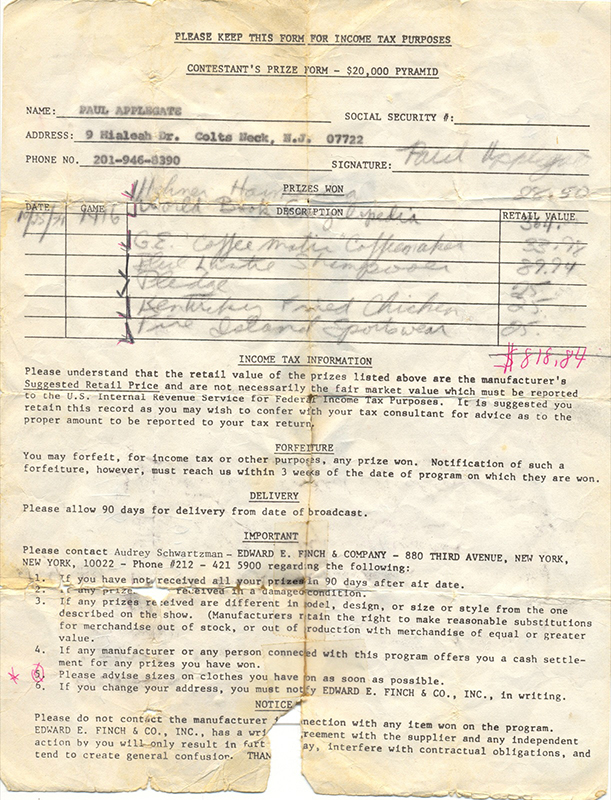 PLEASE KEEP THIS FORM FOR INCOME TAX PURPOSES
CONTESTANT'S PRIZE FORM - $20,000 PYRAMID
NAME: PAUL APPLEGATE SOCIAL SECURITY #:
ADDRESS: 9 Hialeah Dr. Colts Neck, N.J. 07722
PHONE NO. 201-946-8390 SIGNATURE: Paul Applegate
PRIZES WON
DATE GAME DESCRIPTION RETAIL VALUE
World Book
G.E. Coffee Matic Coffeemaker 33.98
Blue Lustre Shampooer 39.94
Pledge 25
Kentucky Fried Chicken 25.
Fire Island Sportswear 25.
$818.84
INCOME TAX INFORMATION
Please understand that the retail value of the prizes listed above are the manufacturer's
Suggested Retail Price and are not necessarily the fair market value which must be reported
to the U.S. Internal Revenue Service for Federal Income Tax Purposes. It is suggested you
retain this record as you may wish to confer with your tax consultant for advice as to the
proper amount to be reported to your tax return.
FORFEITURE
You may forfeit, for income tax or other purposes, any prize won. Notification of such a
forfeiture, however, must reach us within 3 weeks of the date of program on which they are won.
DELIVERY
Please allow 90 days for delivery from date of broadcast.
IMPORTANT
Please contact Audrey Schwartzman - EDWARD E. FINCH & COMPANY - 880 THIRD AVENUE, NEW YORK,
NEW YORK, 10022 - Phone #212 - 421 5900 regarding the following:
1. If you have not received all your prizes in 90 days after air date.
2. If any prize received in a damaged condition.
3. If any prizes received are different in model, design, or size or style from the one
described on the show. (Manufacturers retain the right to make reasonable substitutions
for merchandise out of stock, or out of production with merchandise of equal or greater
value.
4. If any manufacturer or any person connected with this program offers you a cash settle-
ment for any prizes you have won.
* 5. Please advise sizes on clothes you have on as soon as possible.
6. If you change your address, you must notify EDWARD E. FINCH & CO., INC., in writing.
NOTICE
Please do not contact the manufacturer in connection with any item won on the program.
EDWARD E. FINCH & CO., INC., has a agreement with the supplier and any independent
action by you will only result in interfere with contractual obligations, and
tend to create general confusion.